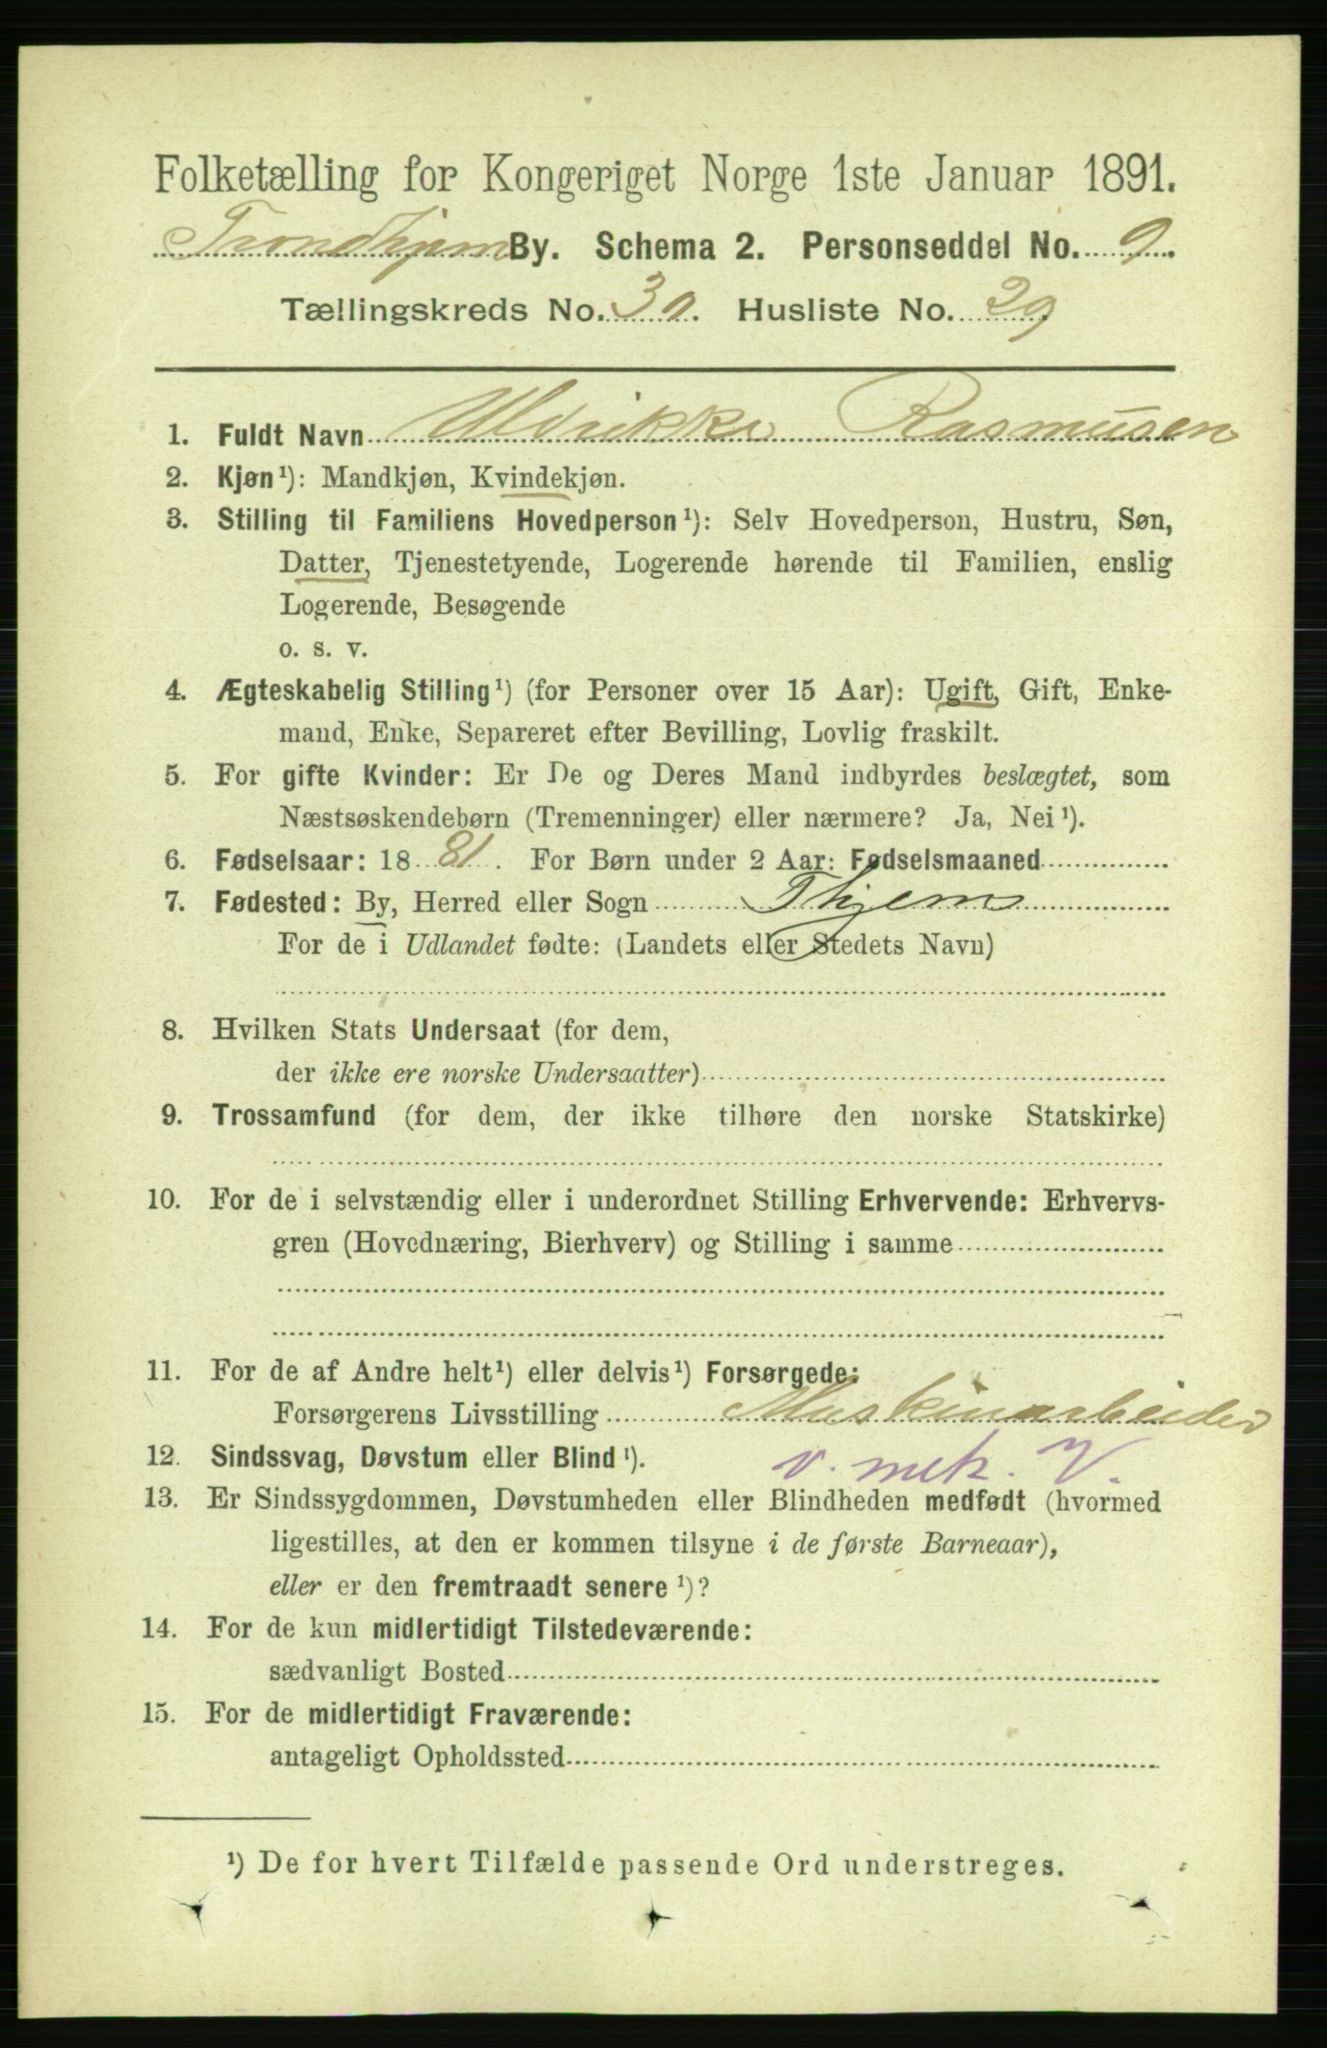 Folketælling for Kongeriget Norge 1ste Januar 1891.
Trondhjem By. Schema 2. Personseddel No. 9.
Tællingskreds No. 30. Husliste No. 29.
1. Fuldt Navn Uldrikke Rasmusen
2. Kjøn¹): Mandkjøn, Kvindekjøn.
3. Stilling til Familiens Hovedperson¹): Selv Hovedperson, Hustru, Søn,
Datter, Tjenestetyende, Logerende hørende til Familien, enslig
Logerende, Besøgende
o. s. v.
4. Ægteskabelig Stilling¹) (for Personer over 15 Aar): Ugift, Gift, Enke-
mand, Enke, Separeret efter Bevilling, Lovlig fraskilt.
5. For gifte Kvinder: Er De og Deres Mand indbyrdes beslægtet, som
Næstsøskendebørn (Tremenninger) eller nærmere? Ja, Nei¹).
6. Fødselsaar: 1881. For Børn under 2 Aar: Fødselsmaaned
7. Fødested: By, Herred eller Sogn Thjem
For de i Udlandet fødte: (Landets eller Stedets Navn)
8. Hvilken Stats Undersaat (for dem,
der ikke ere norske Undersaatter)
9. Trossamfund (for dem, der ikke tilhøre den norske Statskirke)
10. For de i selvstændig eller i underordnet Stilling Erhvervende: Erhvervs-
gren (Hovednæring, Bierhverv) og Stilling i samme
11. For de af Andre helt¹) eller delvis¹) Forsørgede:
Forsørgerens Livsstilling Maskinarbeider
12. Sindssvag, Døvstum eller Blind¹). v. mek. V.
13. Er Sindssygdommen, Døvstumheden eller Blindheden medfødt (hvormed
ligestilles, at den er kommen tilsyne i de første Barneaar),
eller er den fremtraadt senere¹)?
14. For de kun midlertidigt Tilstedeværende:
sædvanligt Bosted
15. For de midlertidigt Fraværende:
antageligt Opholdssted
¹) De for hvert Tilfælde passende Ord understreges.